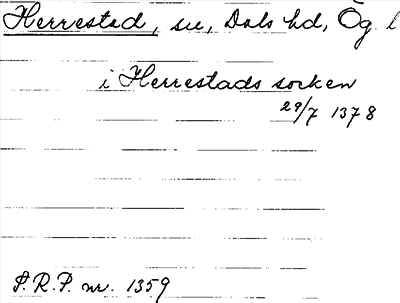 Herrestad, sn, Dals hd, Ög l
i Herrestads socken
29/7 1378
S.R.P. nr. 1359